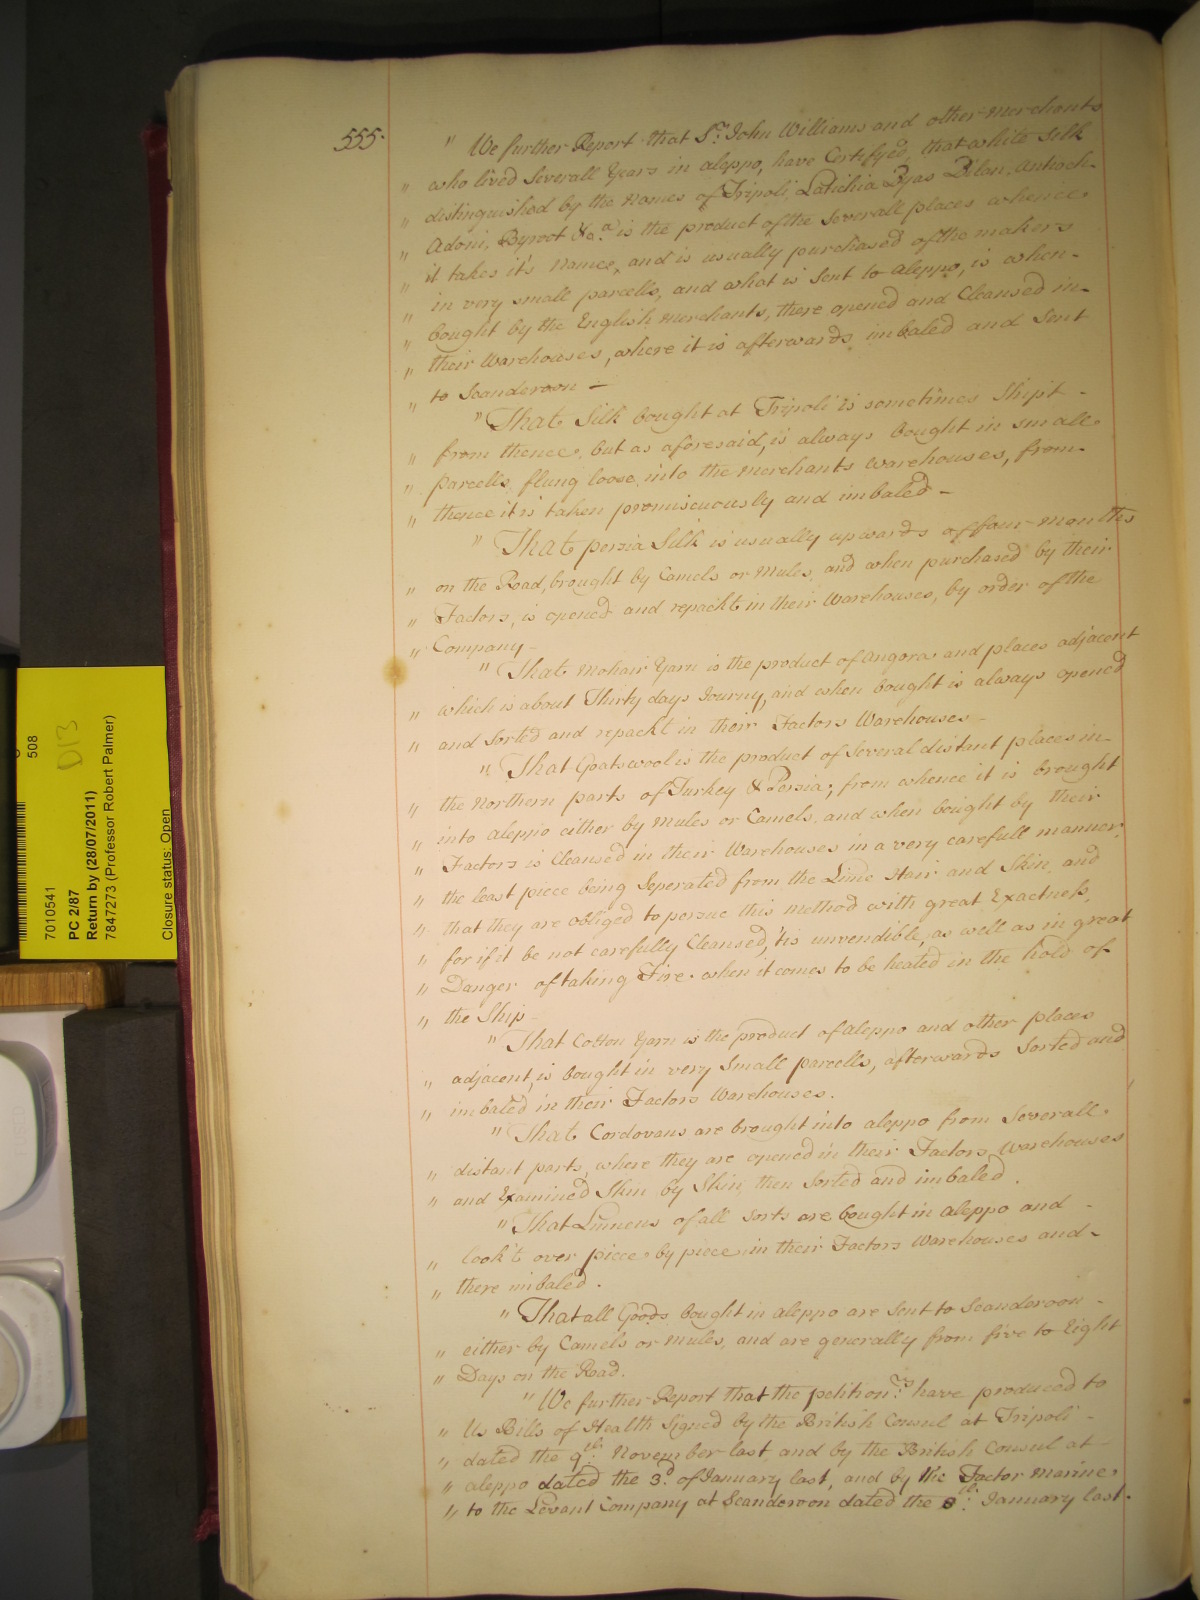 555.
" We further Report that Sr. John Williams and other Merchants
" who lived Severall Years in aleppo, have Certifyed, that white Silk
" distinguished by the Names of Tripoli, Latichia Byas Bilan, Antioch-
" Adoni, Byroot &ca. is the product of the Severall places whence
" it takes it's Names, and is usually purchased of the makers
" in very small parcells, and what is Sent to Aleppo, is when-
" bought by the English Merchants, there opened and Cleansed in-
" their Warehouses, where it is afterwards imbaled and Sent
" to Scanderoon -
" That Silk bought at Tripoli is sometimes Shipt -
" from thence, but as aforesaid, is always bought in small
" parcells, flung loose into the Merchants Warehouses, from-
" thence it is taken promiscuously and imbaled -
" That persia Silk is usually upwards of four Months
" on the Road, brought by Camels or Mules, and when purchased by their
" Factors, is opened and repackt in their Warehouses, by order of the
" Company -
" That Mohair Yarn is the product of Angora and places adjacent
" which is about Thirty days Journy, and when bought is always opened
" and Sorted and repackt in their Factors Warehouses -
" That Goatswool is the product of Several distant places in-
" the Northern parts of Turkey & Persia, from whence it is brought
" into Aleppo either by Mules or Camels, and when bought by their
" Factors is Cleansed in their Warehouses in a very carefull manner,
" the least piece being Seperated from the Lime Hair and Skin, and
" that they are obliged to persue this method with great Exactness,
" for if it be not carefully Cleansed, 'tis unvendible, as well as in great
" Danger of taking Fire when it comes to be heated in the hold of
" the Ship -
" That Cotton Yarn is the product of Aleppo and other places
" adjacent, is bought in very Small parcells, afterwards Sorted and
" imbaled in their Factors Warehouses.
" That Cordovans are brought into aleppo from Severall
" distant parts, where they are opened in their Factors Warehouses
" and Examined Skin by Skin, then Sorted and imbaled.
" That Linnens of all Sorts are bought in Aleppo and -
" look't over piece by piece in their Factors Warehouses and -
" there imbaled.
" That all Goods bought in Aleppo are Sent to Scanderoon -
" either by Camels or Mules, and are generally from five to Eight
" Days on the Road.
" We further Report that the petitionrs. have produced to
" Us Bills of Health Signed by the British Consul at Tripoli -
" dated the 9th: November last, and by the British Consul at
" aleppo dated the 3d. of January last, and by the Factor Marine
" to the Levant Company at Scanderoon dated the 8th: January last.
7010541
PC 2/87
Return by (28/07/2011)
7847273 (Professor Robert Palmer)
Closure status: Open
508
D13